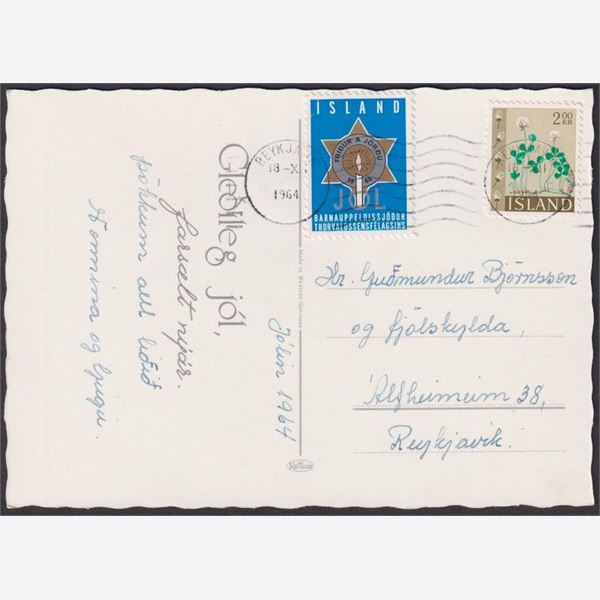 Gleðileg jól,
farsælt nýár.
þökkum allt liðið
Nonnina og
Jólin 1964
Made in Western Germany
Krüger
REYKJAVÍK
18-X
1964
ISLAND
FRIÐUR Á JÖRÐU
1964
JÓL
BARNAUPPELDISSJÓÐUR
THORVALDSENSFÉLAGSINS
2.00
KR
ISLAND
Hr. Guðmundur Björnsson
og fjölskylda,
Álfheimeim 38,
Reykjavík.